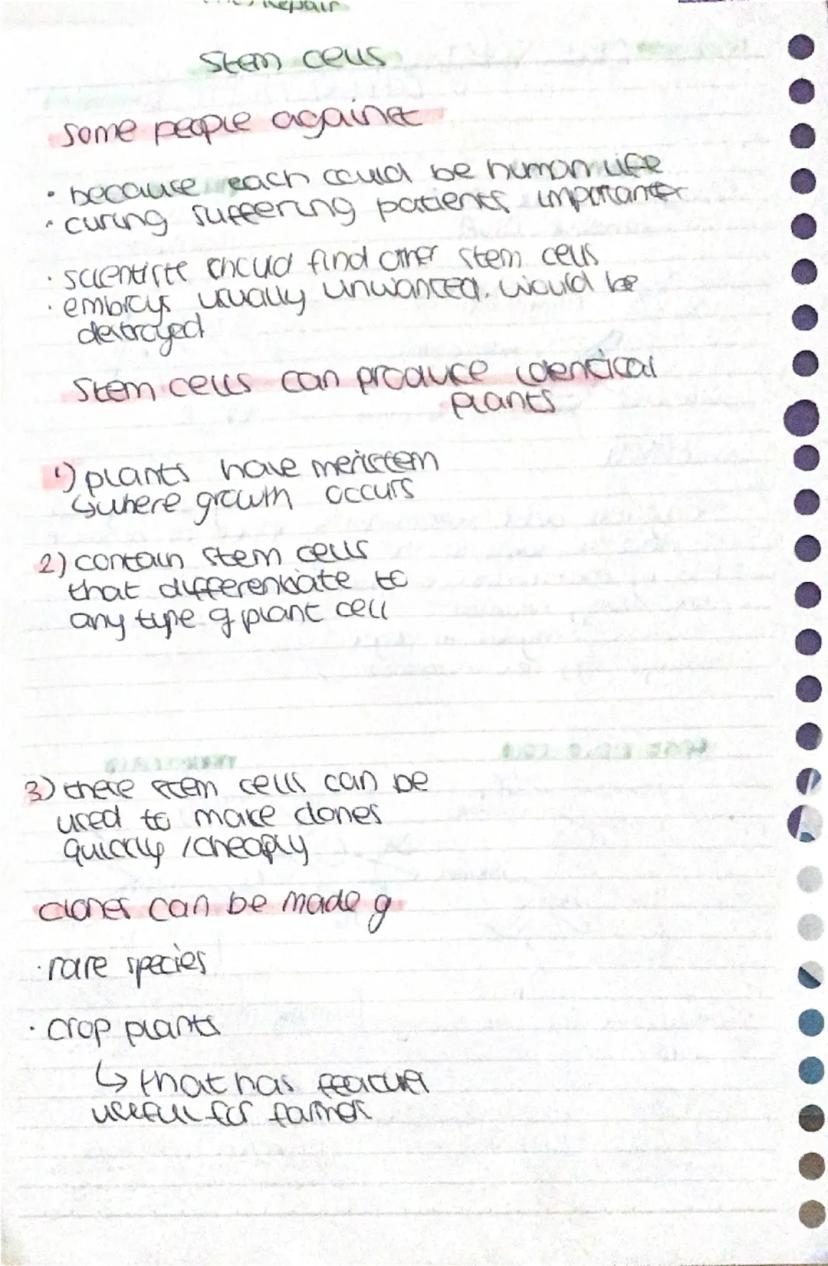 Repair
Stem cells
some people against
• because each could be human life
• curing suffering patients important
• scientists should find other stem cells
• embryos usually unwanted. would be
destroyed
Stem cells can produce identical
plants
1) plants have meristem
↳ where growth occurs
2) contain stem cells
that differentiate to
any type of plant cell
3) these stem cells can be
used to make clones
quickly / cheaply
clones can be made of
• rare species
• crop plants
↳ that has feature
useful for farmer